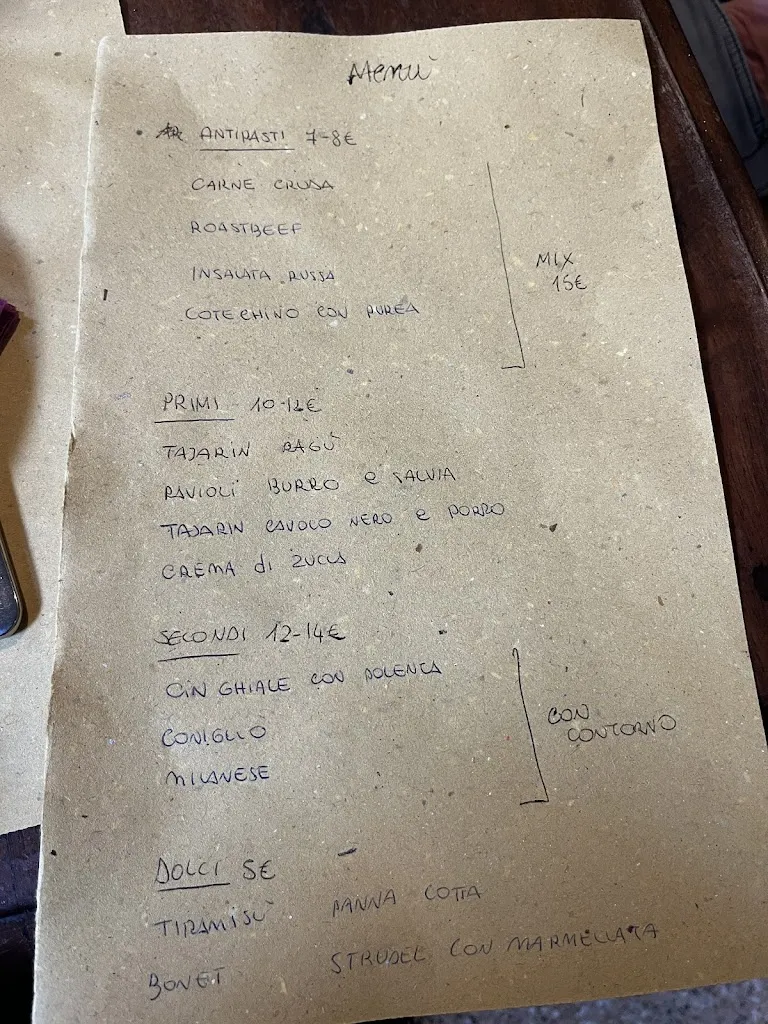 Menù
ANTIPASTI 7-8€
CARNE CRUDA
ROASTBEEF
INSALATA RUSSA
COTECHINO CON PUREA
MIX
15€
PRIMI 10-12€
TAJARIN RAGÙ
RAVIOLI BURRO e SALVIA
TAJARIN CAVOLO NERO e PORRO
CREMA di ZUCCA
SECONDI 12-14€
CINGHIALE CON POLENTA
CONIGLIO
MILANESE
CON
CONTORNO
DOLCI 5€
TIRAMISÙ PANNA COTTA
BONET STRUDEL CON MARMELLATA